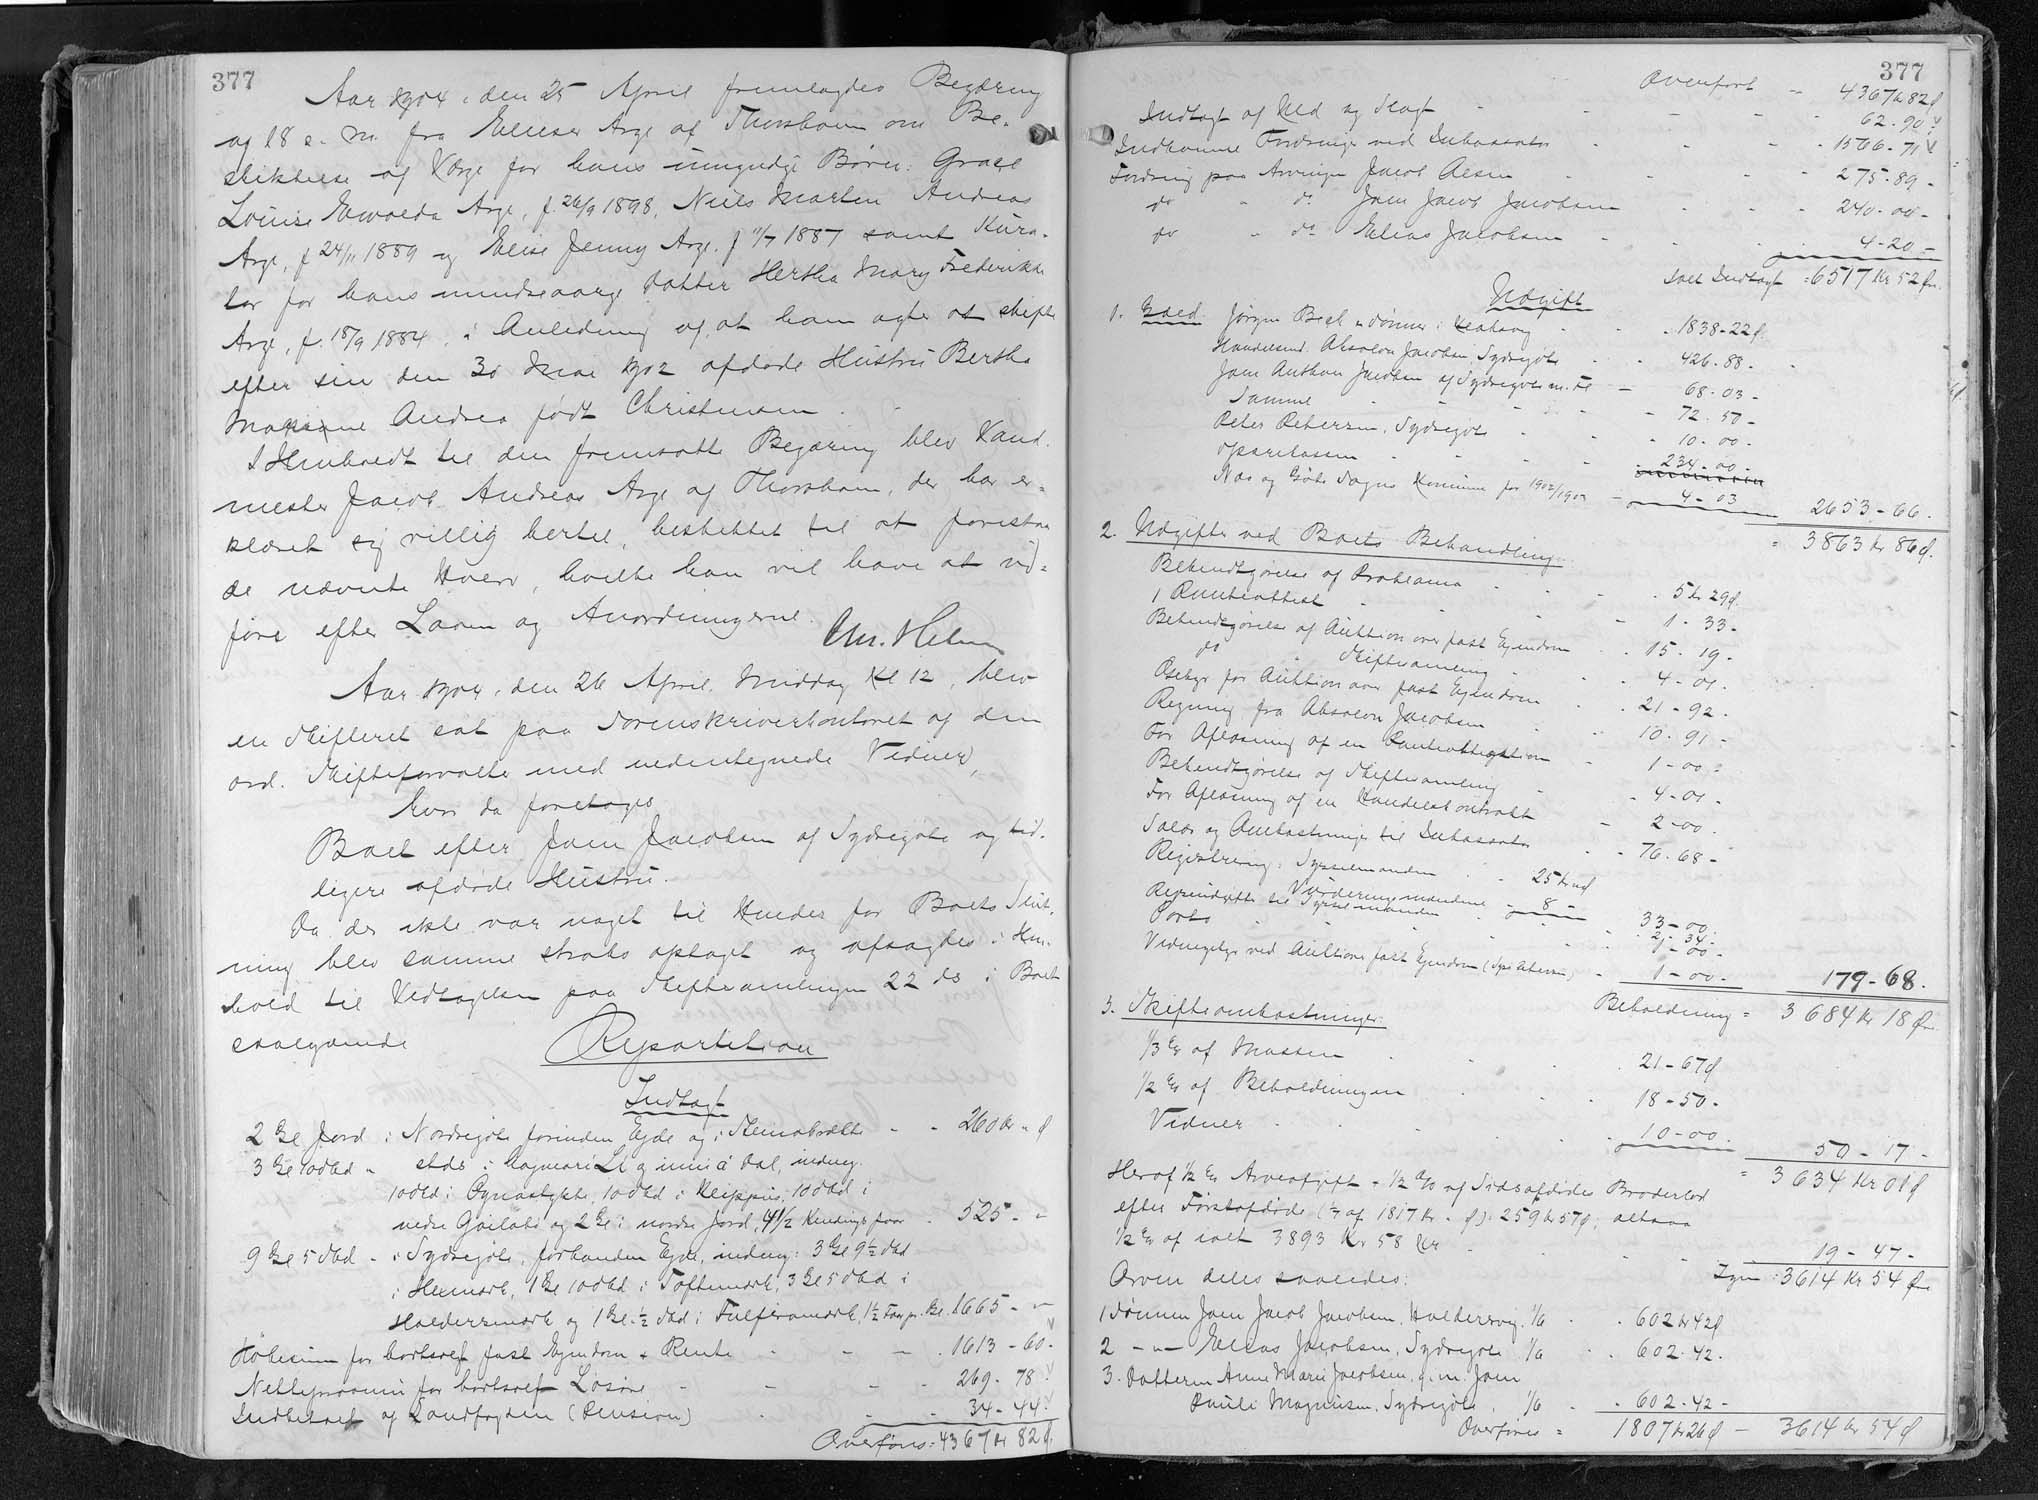 377
Aar 1904, den 25 April fremlagdes Begæring
af 18 s. M. fra Elieser Arge af Thorshavn om Be-
skikkelse af Værge for hans umyndige Børn: Grace
Louise Ewalda Arge, f. 26/9 1898, Niels Morten Andreas
Arge, f 24/11 1889 og Elise Jenny Arge f 11/7 1887 samt Kura-
tor for hans mindreaarige Datter Hertha Mary Frederikke
Arge, f. 18/9 1884, i Anledning af, at han agter at skifte
efter sin den 30 Mai 1902 afdøde Hustru Bertha
Maxine Andrea født Christensen.
I Henhold til den fremsatte Begæring blev Vand-
mester Jacob Andreas Arge af Thorshavn, der har er-
klæret sig villig hertil, beskikket til at forestaa
de nævnte Hverv, hvilke han vil have at ud-
føre efter Loven og Anordningerne.
Chr. Helm
Aar 1904, den 26 April Middag Kl 12, blev
en Skifteret sat paa Sorenskriverkontoret af den
ord. Skifteforvalter med undertegnede Vidner,
hvor da foretages
Boet efter Joen Jacobsen af Sydregøte og tid-
ligere afdøde Hustru.
Da der ikke var noget til Hinder for Boets Slut-
ning blev samme straks optaget og afsagdes i Hen-
hold til Vedtagelsen paa Skiftesamlingen 22 ds i Boet
saalydende
Repartition
Indtægt
2 Gl Jord i Nordregøte forinden Egde og i Steinabrekke - - 260 Kr - Ø
3 Gl 10 skd - sstds i Li og inni á Dal, indeg.
10 skd i 10 skd i Kleippus, 10 skd i
nedre og 2 Gl i nordre Jord, 4½ Kendings foor - 525 - "
9 Gl 5 skd - i Sydregøte, forhanden Egde, indeg: 3 Gl 9½ skd
i Heimark, 1 Gl 10 skd i Toftemark, 3 Gl 5 skd i
Haldersmark og 1 Gl ½ skd i 1½ Faar pr. Gl. 1665 - "
Købesum for bortsolgt fast Ejendom + Rente - - - 1613 - 60 -
Nettoprovenu for bortsolgt Løsøre - - - 269 - 78
Indbetalt af Landfogden (Pension) - - 34 - 44
Overføres = 4367 Kr 82 Ø.
377
Overført - 4367 Kr 82 Ø
Indtægt af Uld og Slagt - - - 62 - 90
Indkomne Fordringer ved Inkassator - - - 1566 - 71
Fordring paa Arvingen Jacob Olsen - - - 275 - 89 -
do - do Joen Jacob Jacobsen - - - 240 - 00 -
do - do Elias Jacobsen - - - 4 - 20 -
Ialt Indtægt = 6517 Kr 52 Øre
Udgift
1. Gæld Jørgen Bech & Sønner i - - 1838 - 22 Ø.
Handelsmd. Absalon Jacobsen, Sydregøte - - 426 - 88 -
Joen Anthon Jacobsen af Sydregøte m. Fl - 68 - 03 -
Samme - - - 72 - 50 -
Peter Petersen, Sydregøte - - 10 - 00 -
Sparekassen - - - 234 - 00 -
Næs og Gøte Sogns Kommune for 1902/1903 - 4 - 03
2653 - 66.
= 3863 Kr 86 Ø.
2. Udgifter ved Boets Behandling:
Bekendtgørelse af Proklama - - - 5 Kr 29 Ø.
1 Panteattest - - - 1 - 33 -
Bekendtgørelse af Auktion over fast Ejendom - - 15 - 19 -
do " Skiftesamling - - 4 - 01 -
Gebyr for Auktion over fast Ejendom - - 21 - 92 -
Regning fra Absalon Jacobsen - - 10 - 91 -
For Aflæsning af en Panteobligation - 1 - 00 -
Bekendtgørelse af Skiftesamling - - 4 - 01 -
For Aflæsning af en Handelskontrakt - 2 - 00 -
Salær og Omkostninger til Inkassator - - 76 - 68 -
Registrering: Sysselmanden - - 25 Kr Ø
Vurderingsmændene - 8 - 33 - 00 -
Rejseudgifter til Sysselmanden - - 2 - 34 -
Porto - - - 1 - 00 -
Vidnegebyr ved Auktion fast Ejendom - 1 - 00 -
179 - 68.
Beholdning = 3684 Kr 18 Øre
3. Skifteomkostninger:
1/3 % af Massen - - - 21 - 67 Ø
1/2 % af Beholdningen - - - 18 - 50 -
Vidner - - - 10 - 00 -
50 - 17 -
= 3634 Kr 01 Ø
Heraf ½ % Arveafgift - ½ % af Sidstafdødes Broderlod
efter Førstafdøde (1/7 af 1817 Kr - Ø): 259 Kr 57 Ø, altsaa
½ % af ialt 3893 Kr 58 Øre - - - 19 - 47 -
Igen = 3614 Kr 54 Øre
Arven deles saaledes:
1 Sønnen Joen Jacob Jacobsen, Haldersvig 1/6 - - 602 Kr 42 Ø
2 - " - Elias Jacobsen, Sydregøte 1/6 - - 602 - 42 -
3. Datteren Anne Marie Jacobsen, g. m. Joen
Pauli Magnusen, Sydregøte, 1/6 - - 602 - 42 -
Overføres = 1807 Kr 26 Ø - 3614 Kr 54 Ø